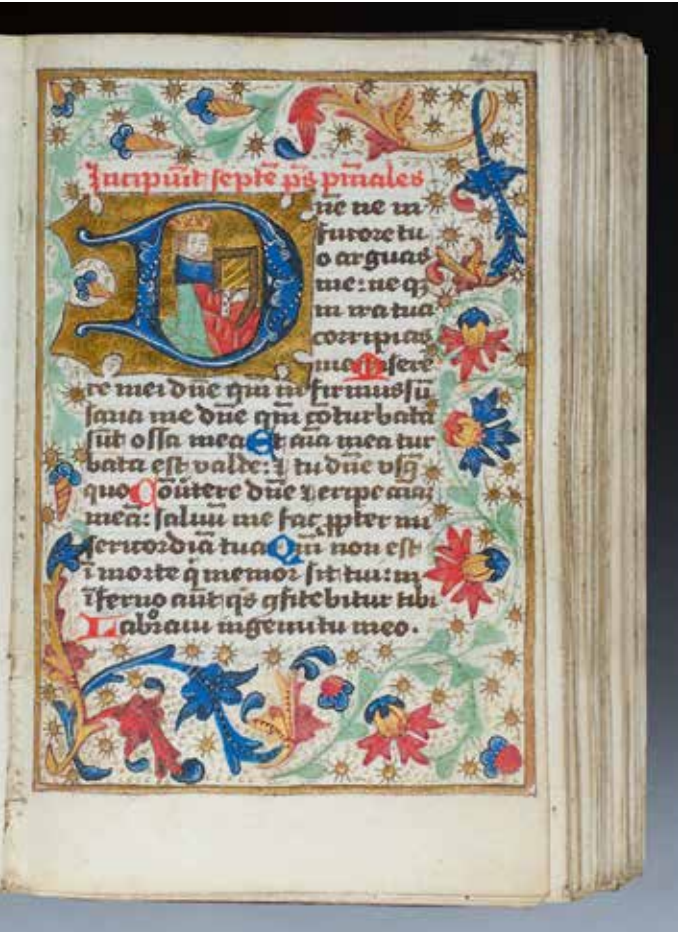 Incipiūt septē ps̄ pn̄iales
Dn̄e ne in
furore tu
o arguas
me: neqꝫ
in ira tua
corripias
me Misere
re mei dn̄e qm̄ infirmus sū
sana me dn̄e qm̄ cōturbata
sūt ossa mea Et aīa mea tur
bata est valde: ⁊ tu dn̄e vsq̄
quo Cōūtere dn̄e ⁊ eripe aīaꝫ
meā: saluū me fac ꝓpter mi
sericordiā tuā Qm̄ non est
ī morte q̇ memor sit tui: in
īferno aūt q̇s ꝯfitebitur tibi
Laboraui in gemitu meo.